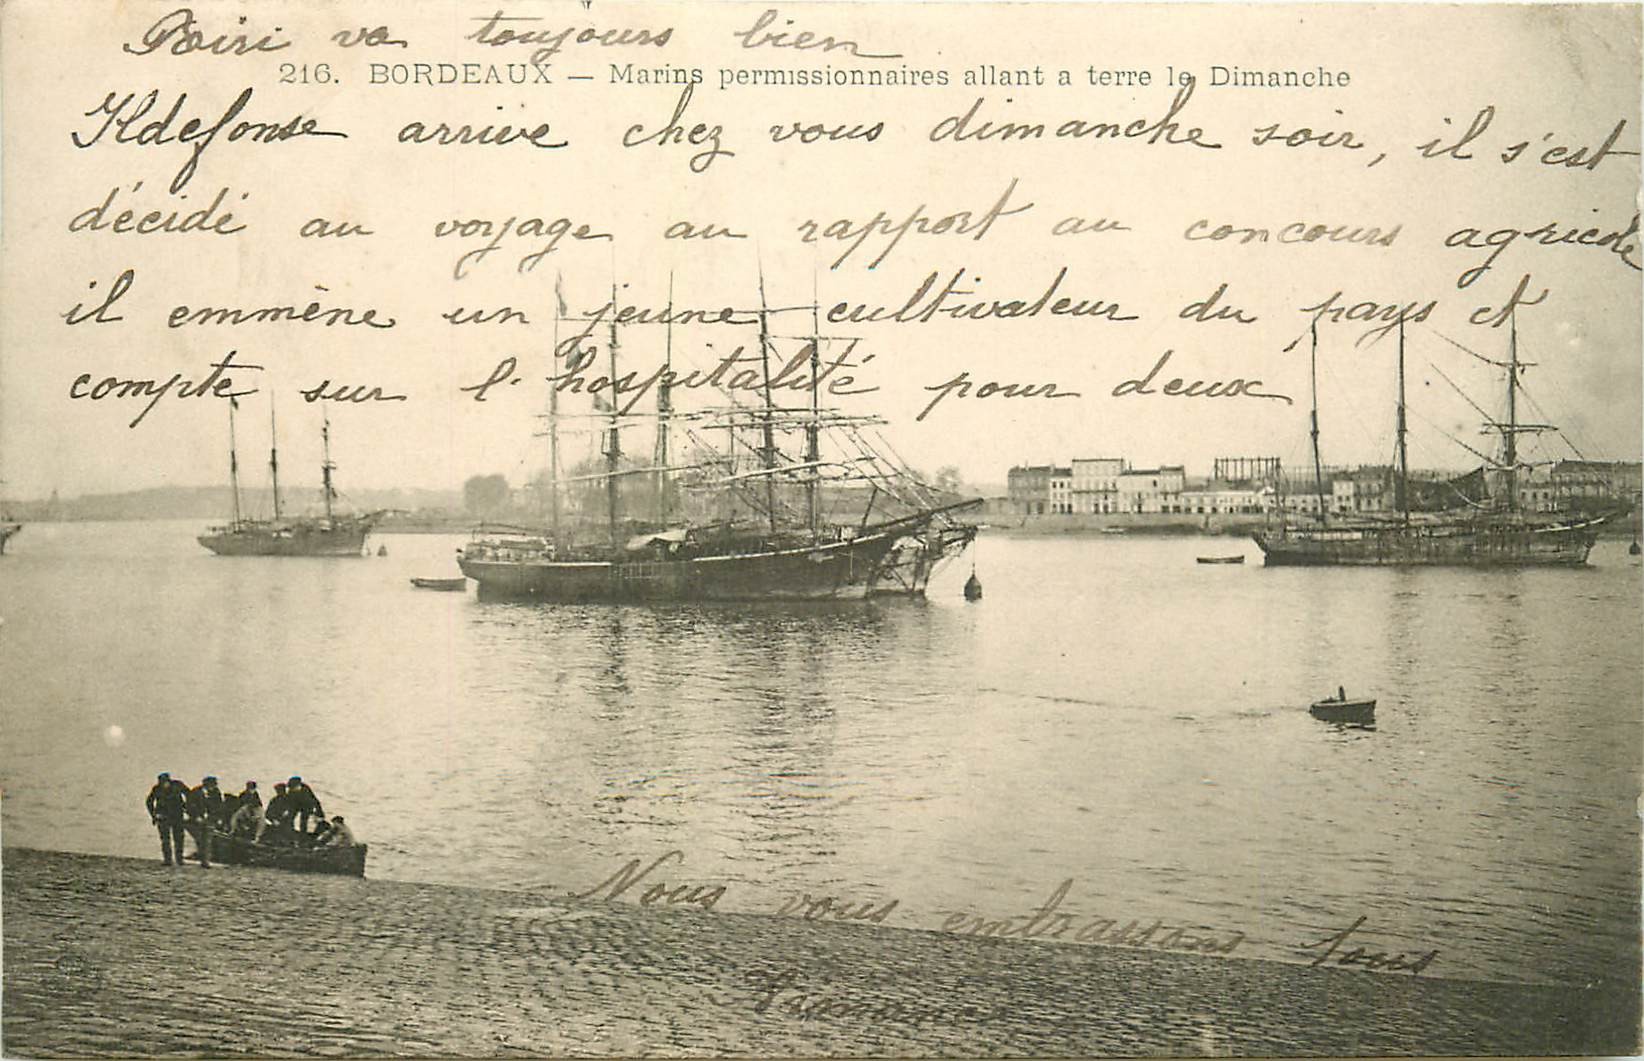 va toujours bien
216. BORDEAUX — Marins permissionnaires allant a terre le Dimanche
Ildefonse arrive chez vous dimanche soir, il s'est
décidé au voyage au rapport au concours agricole
il emmène un jeune cultivateur du pays et
compte sur l'hospitalité pour deux
Nous vous embrassons tous